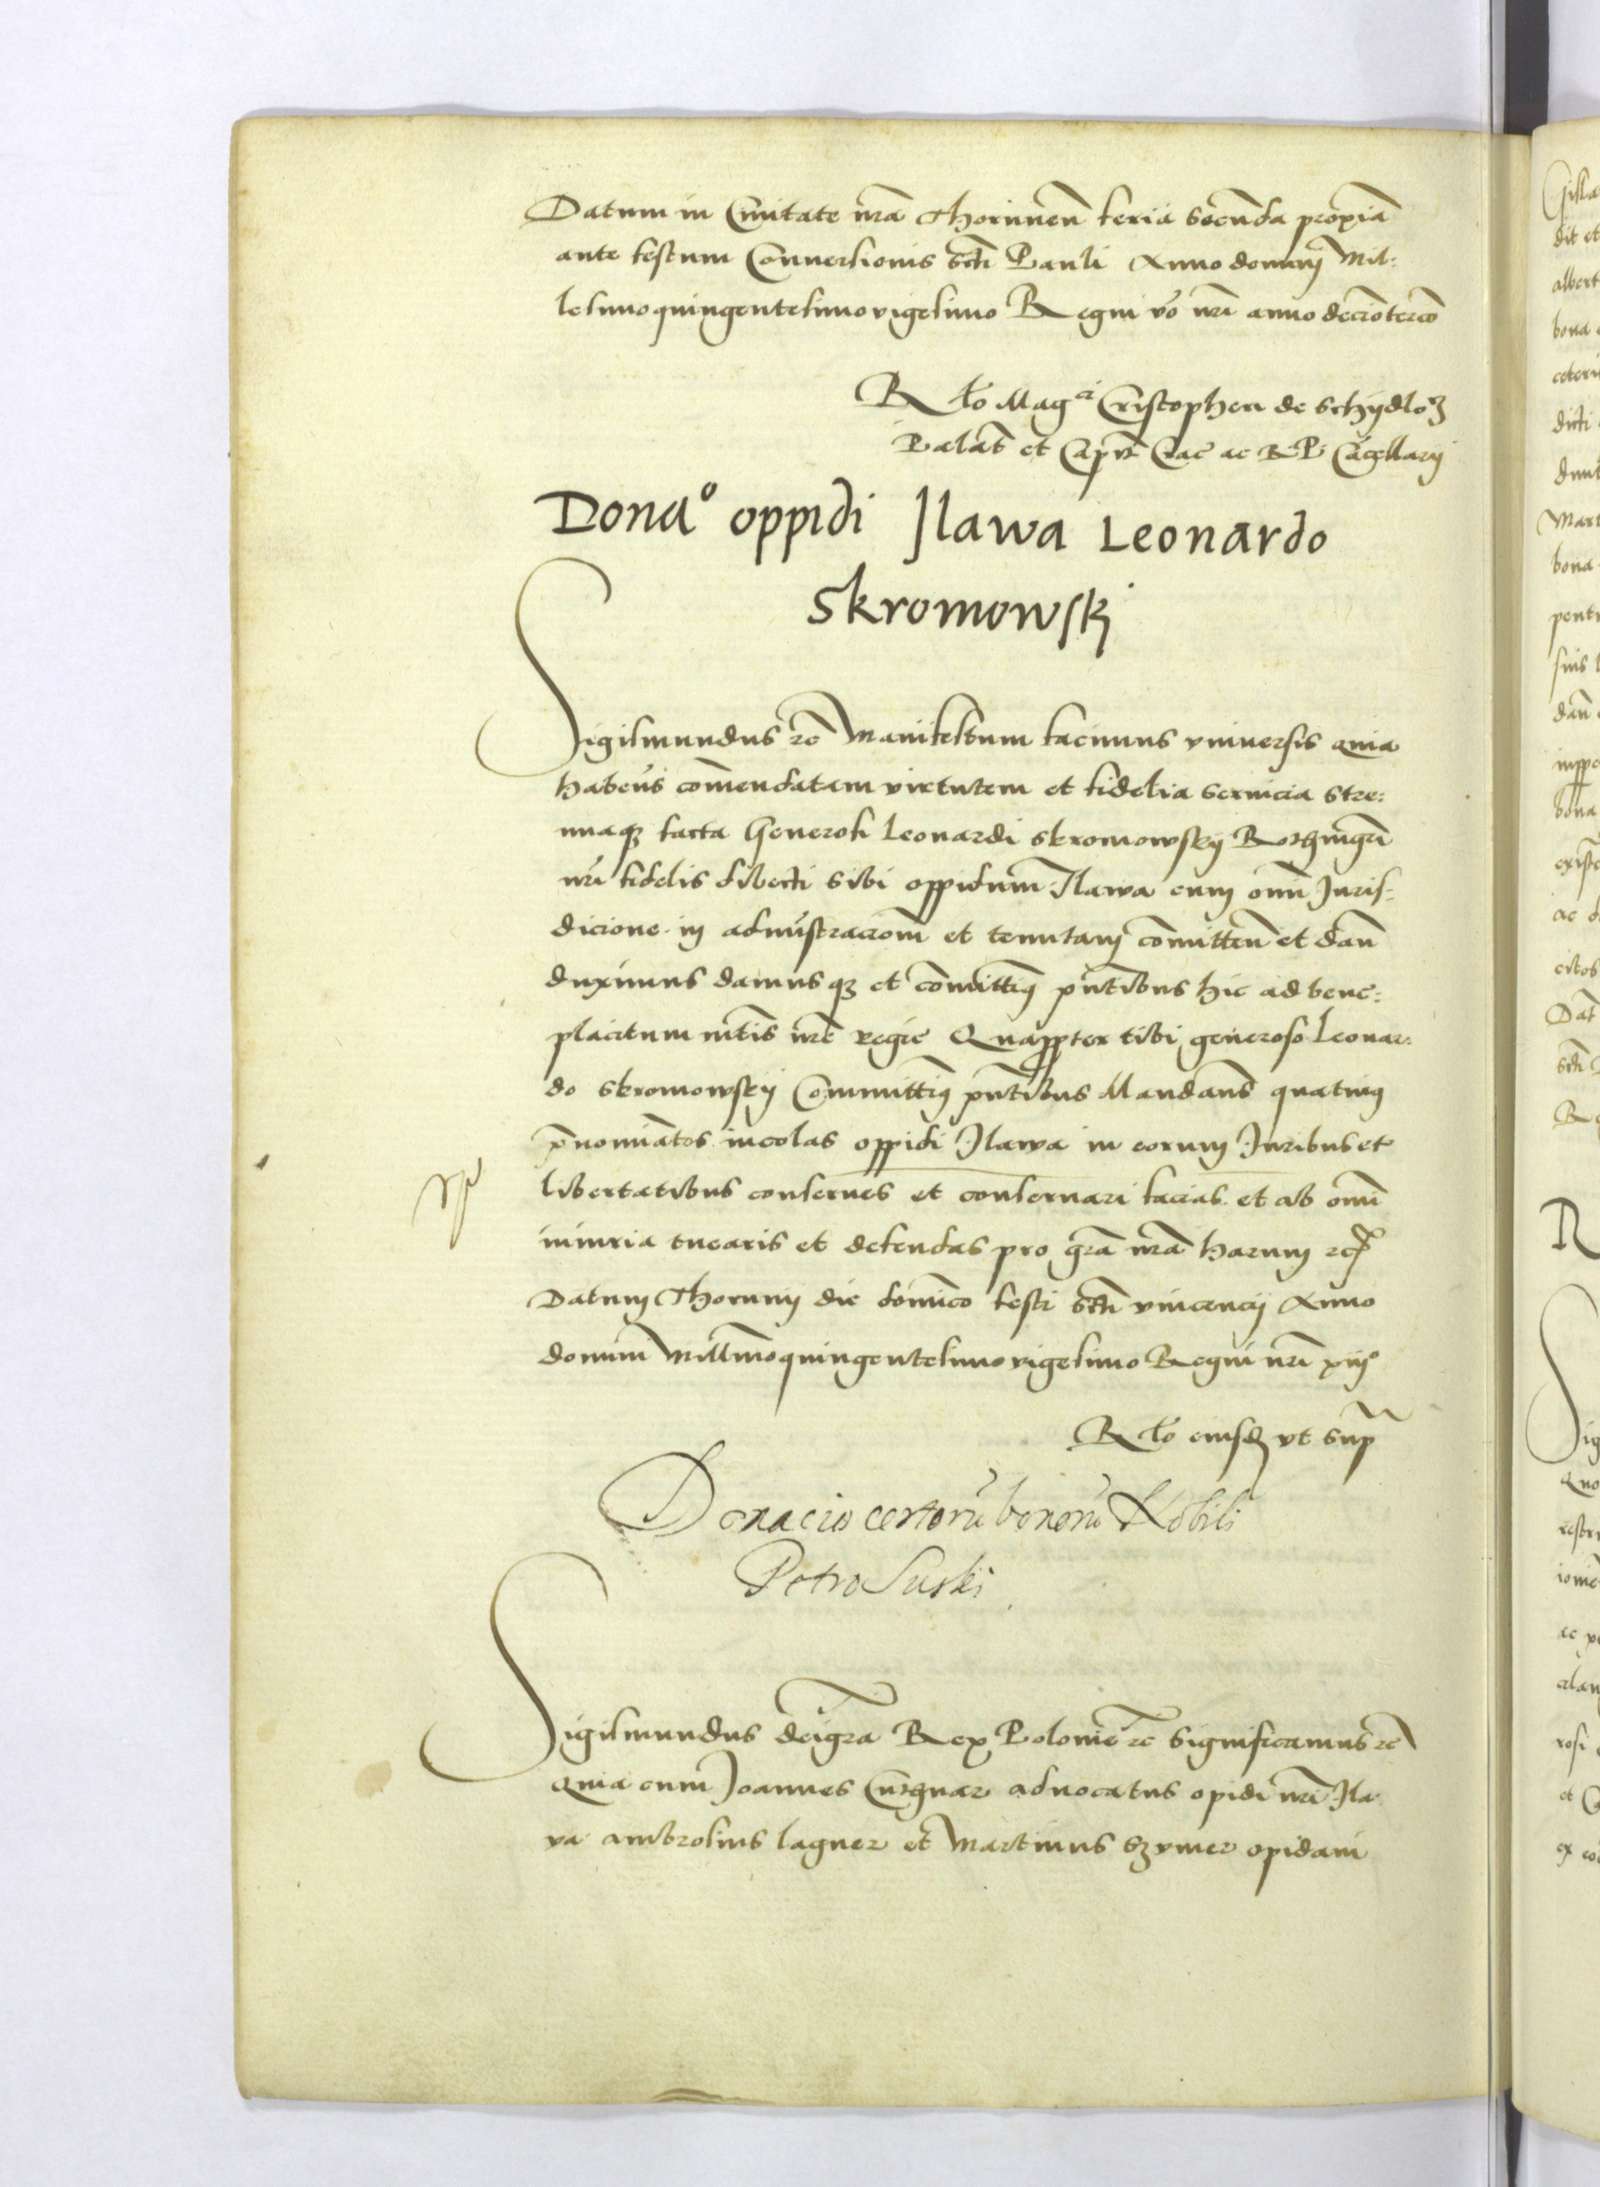 Datum in Civitate nrã Thorunen̄ feria secũda proxiã
ante festum Conversionis Scti Pauli Anno domini Mil-
lesimoquingentesimovigesimo Regni vo nri anno decimotercio
R̃lo Magci Cristopheri de Schydlo⁊
Palat̃ et Capit̃ Crac̃ ac RP Cãcellarij
Donao oppidi Ilawa Leonardo
Skromowskj
Sigismundus ⁊c Manifestum facimus vniversis quia
habeñs comendatam virtutem et fidelia servicia stre-
nuaq⁊ facta Generosi Leonardi Skromowskij Rothmgri
nri fidelis dilecti sibi oppidum Ilawa cum omi Juris-
dicione in adm̃istraciom̃ et tenutam com̃itten̄ et dan̄
duximus damusq⁊ et com̃ittimꝯ pñtibus hic ad bene-
placitum mt̃is nrẽ regie Quappter tibi generoso Leonar-
do Skromowskij Committimꝯ pñtibus Mandans quatinꝯ
p̃nomĩatos incolas oppidi Ilawa in eorum Juribus et
libertatibus conserves et conservari facias et ab omi
iniuria tuearis et defendas pro grã nrã harum ⁊c
Datum Thorunij die domĩco festi scti vincencij Anno
domini Millmoquingentesimovigesimo Regni nri xiijo
R̃lo eiusd⁊ vt sup̃
Donacio certorũ bonorũ Nobili
Petro Suski
Sigismundus deigrã Rex Polonie ⁊c Significamus ⁊c
Quia cum Joannes advocatus opidi nri Ila
va ambrosius lagner et Martinus opidani